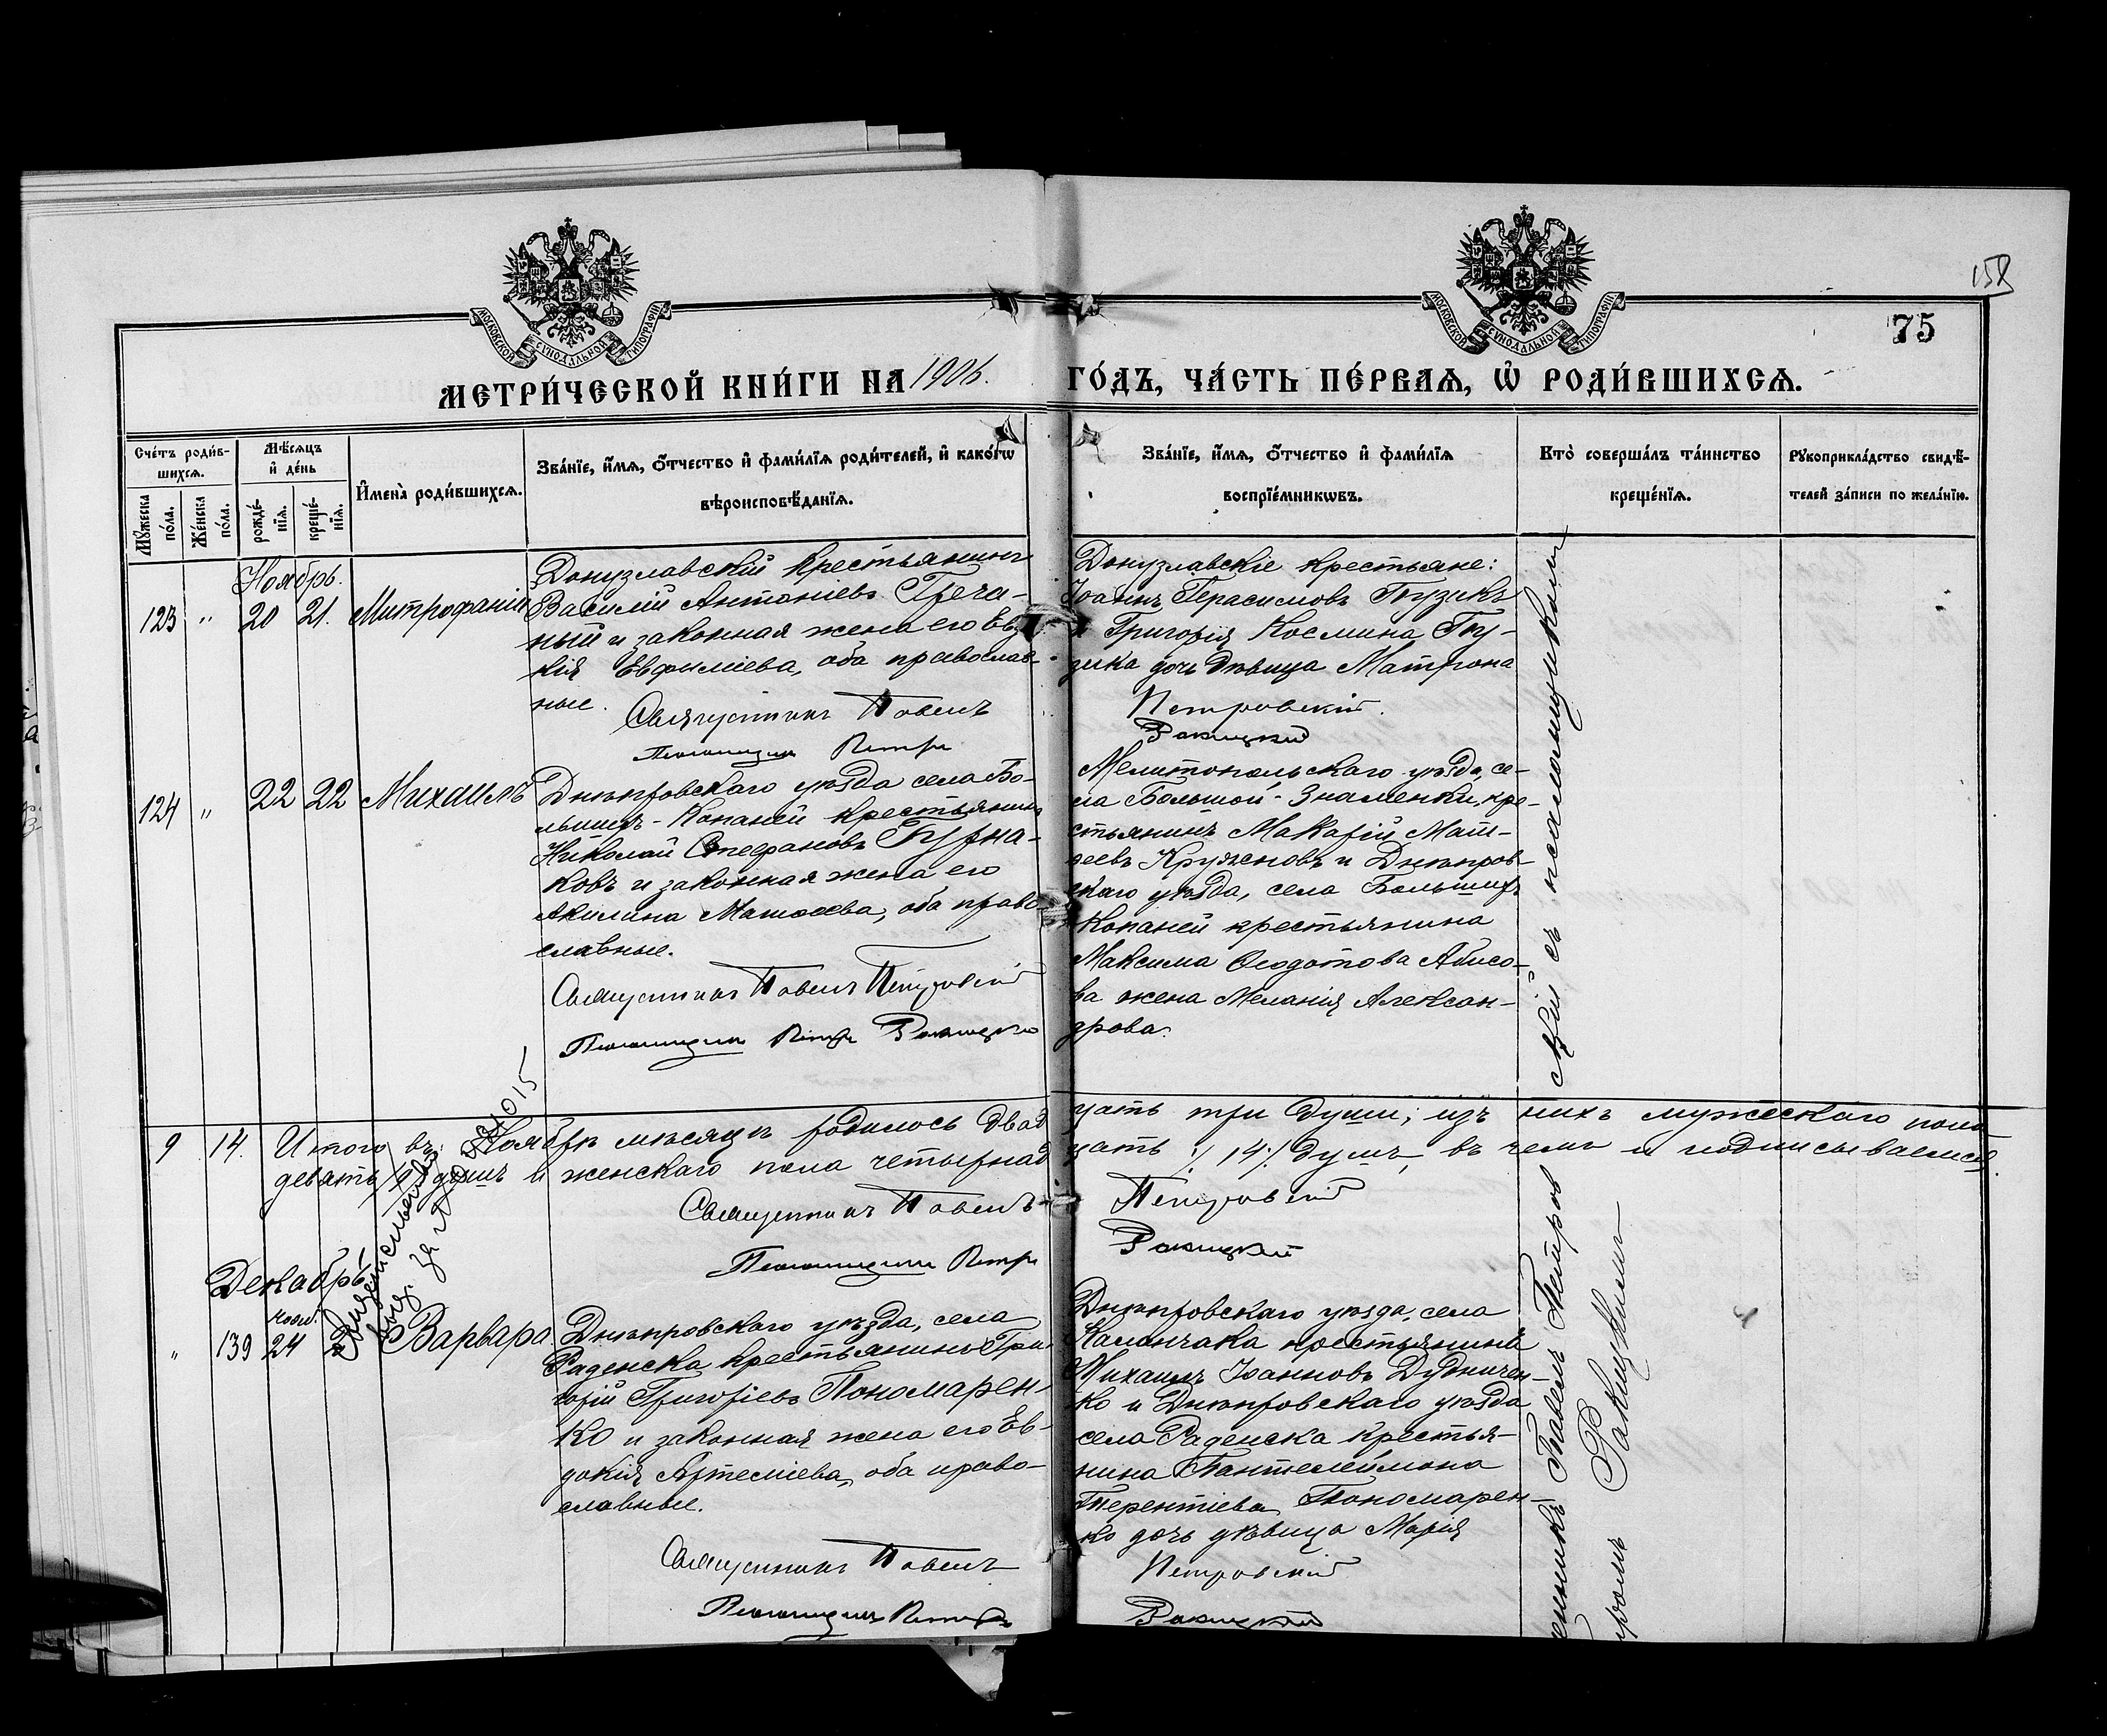 158
75
МОСКОВСКОЙ СѴНОДАЛЬНОЙ ТИПОГРАФІИ
МОСКОВСКОЙ СѴНОДАЛЬНОЙ ТИПОГРАФІИ
МЕТРИ́ЧЕСКОЙ КНИ́ГИ НА 1906. ГО́ДЪ, ЧА́СТЬ ПЕ́РВАѦ, Ѽ РОДИ́ВШИХСѦ.
Сче́тъ роди́в-
шихсѧ.
Мꙋ́жеска
по́ла.
Же́нска
по́ла.
Мѣ́сѧцъ
и҆ де́нь
рожде́-
нїѧ.
креще́-
нїѧ.
И҆мена̀ роди́вшихсѧ.
Зва́нїе, и҆́мѧ, ѻ҆́тчество и҆ фами́лїѧ роди́телей, и҆ како́гѡ
вѣроисповѣ́данїѧ.
Зва́нїе, и҆́мѧ, ѻ҆́тчество и҆ фами́лїѧ
воспрїе́мникѡвъ.
Кто̀ соверша́лъ та́инство
креще́нїѧ.
Рꙋкоприкла́дство свидѣ́-
телей за́писи по жела́нїю.
Ноябрь.
123 " 20 21. Митрофаній
Донузлавскій крестьянинъ
Василій Антоніевъ Греча-
ный и законная жена его Ев
кія Евфиміева, оба православ-
ные.
Священникъ Павелъ
Псаломщикъ Петръ
Донузлавскіе крестьяне:
Іоаннъ Герасимовъ Гнузикъ
и Григорія Космина Гну-
зика дочь дѣвица Матрона
Петровскій.
Ракицкій
124 " 22 22 Михаилъ
Днѣпровскаго уѣзда села Бо-
льшихъ-Копаней крестьянинъ
Николай Стефановъ Бурна-
ковъ и законная жена его
Акилина Матѳеева, оба право-
славные.
Священникъ Павелъ Петровскій
Псаломщикъ Петръ Ракицкій
Мелитопольскаго уѣзда, се-
ла Большой-Знаменки, кре-
стьянинъ Макарій Мат-
ѳеевъ Круженовъ и Днѣпров-
скаго уѣзда, села Большихъ
Копаней крестьянина
Максима Ѳеодотова Абисо-
ва жена Меланія Алексан-
дрова.
9 14. Итого въ Ноябрѣ мѣсяцѣ родилось двадцать три души; изъ нихъ мужескаго пола
девять /9/ душъ и женскаго пола четырнадцать /14/ душъ, въ чемъ и подписываемся.
Священникъ Павелъ Петровскій
Псаломщикъ Петръ Ракицкій
Декабрь
нояб.
" 139 24 Варвара
Днѣпровскаго уѣзда, села
Раденска крестьянинъ Гри-
горій Григоріевъ Пономарен-
ко и законная жена его Ев-
докія Артеміева, оба право-
славные.
Священникъ Павелъ
Псаломщикъ Петръ
Днѣпровскаго уѣзда, села
Каланчака крестьянинъ
Михаилъ Іоанновъ Дудничен-
ко и Днѣпровскаго уѣзда
села Раденска крестья-
нина Пантелеймона
Терентіева Пономарен-
ко дочь дѣвица Марія
Петровскій
Ракицкій
енникъ Павелъ Петровскій съ псаломщикомъ
тромъ Ракицкимъ